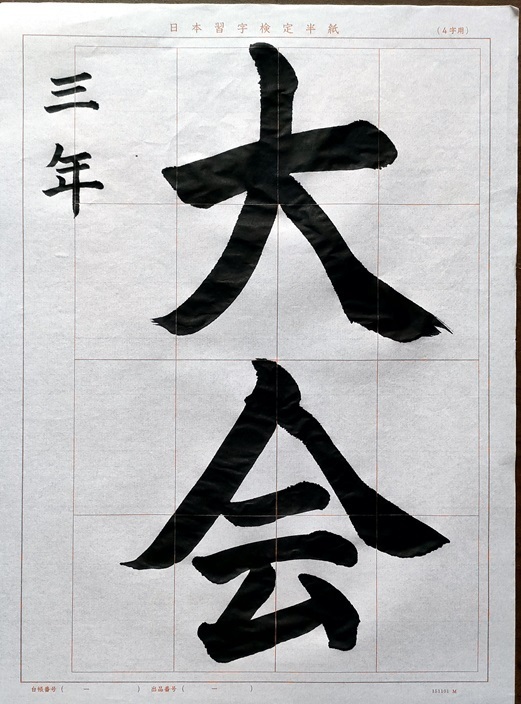 日本習字検定半紙
(4字用)
大会
三年
台帳番号 ( ー )
出品番号 ( ー )